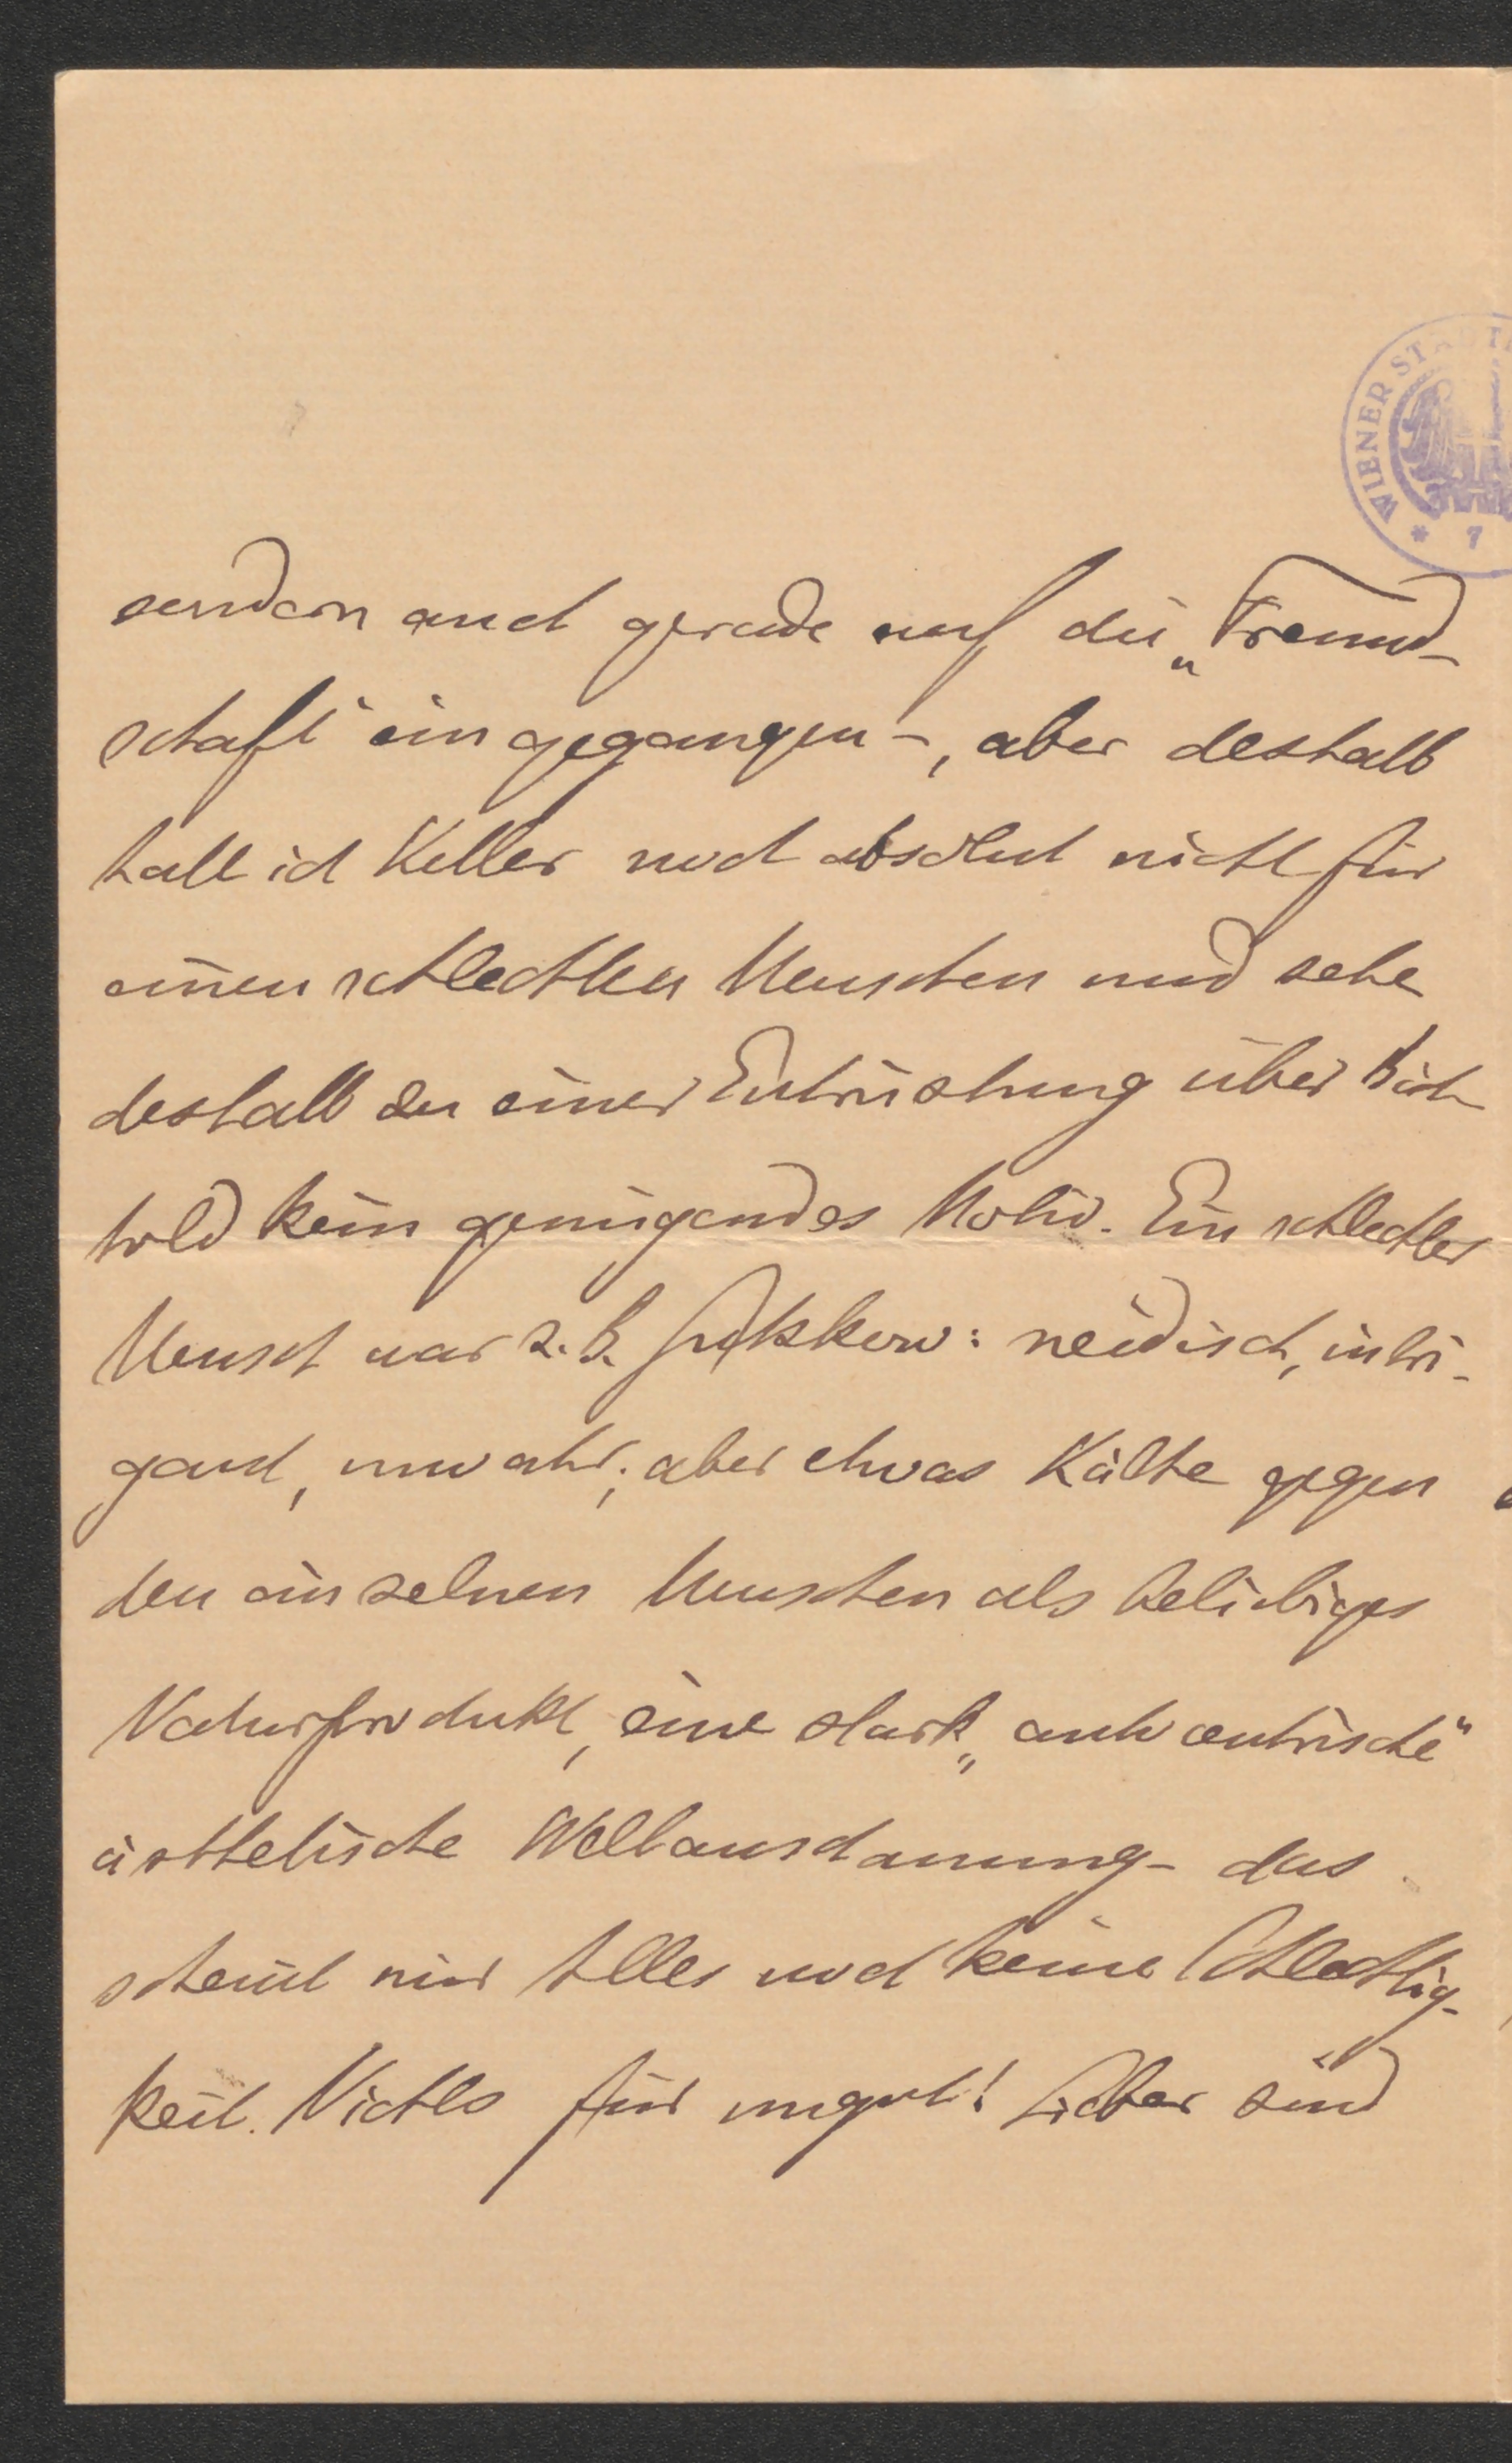 WIENER ST
* 7
sondern auch gerade auf die „Freund-
schaft“ eingegangen –, aber deshalb
halt ich Keller noch absolut nicht für
einen schlechten Menschen und sehe
deshalb zu einer Entrüstung über Bäch-
told kein genügendes Motiv. Ein schlechter
Mensch war z. B. Gutzkow: neidisch, intri-
gant, unwahr; aber etwas Kälte gegen
den einzelnen Menschen als beliebiges
Naturprodukt, eine stark „autocentrische“
ästhetische Weltanschauung – das
scheint mir Alles noch keine Schlechtig-
keit. Nichts für ungut! Lieber sind